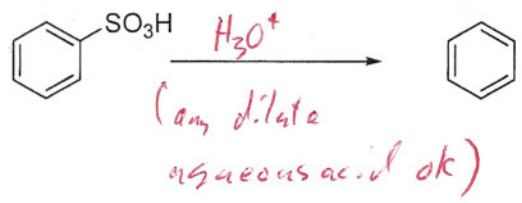 SO₃H
H₃O⁺
(any dilute
aqueous acid ok)